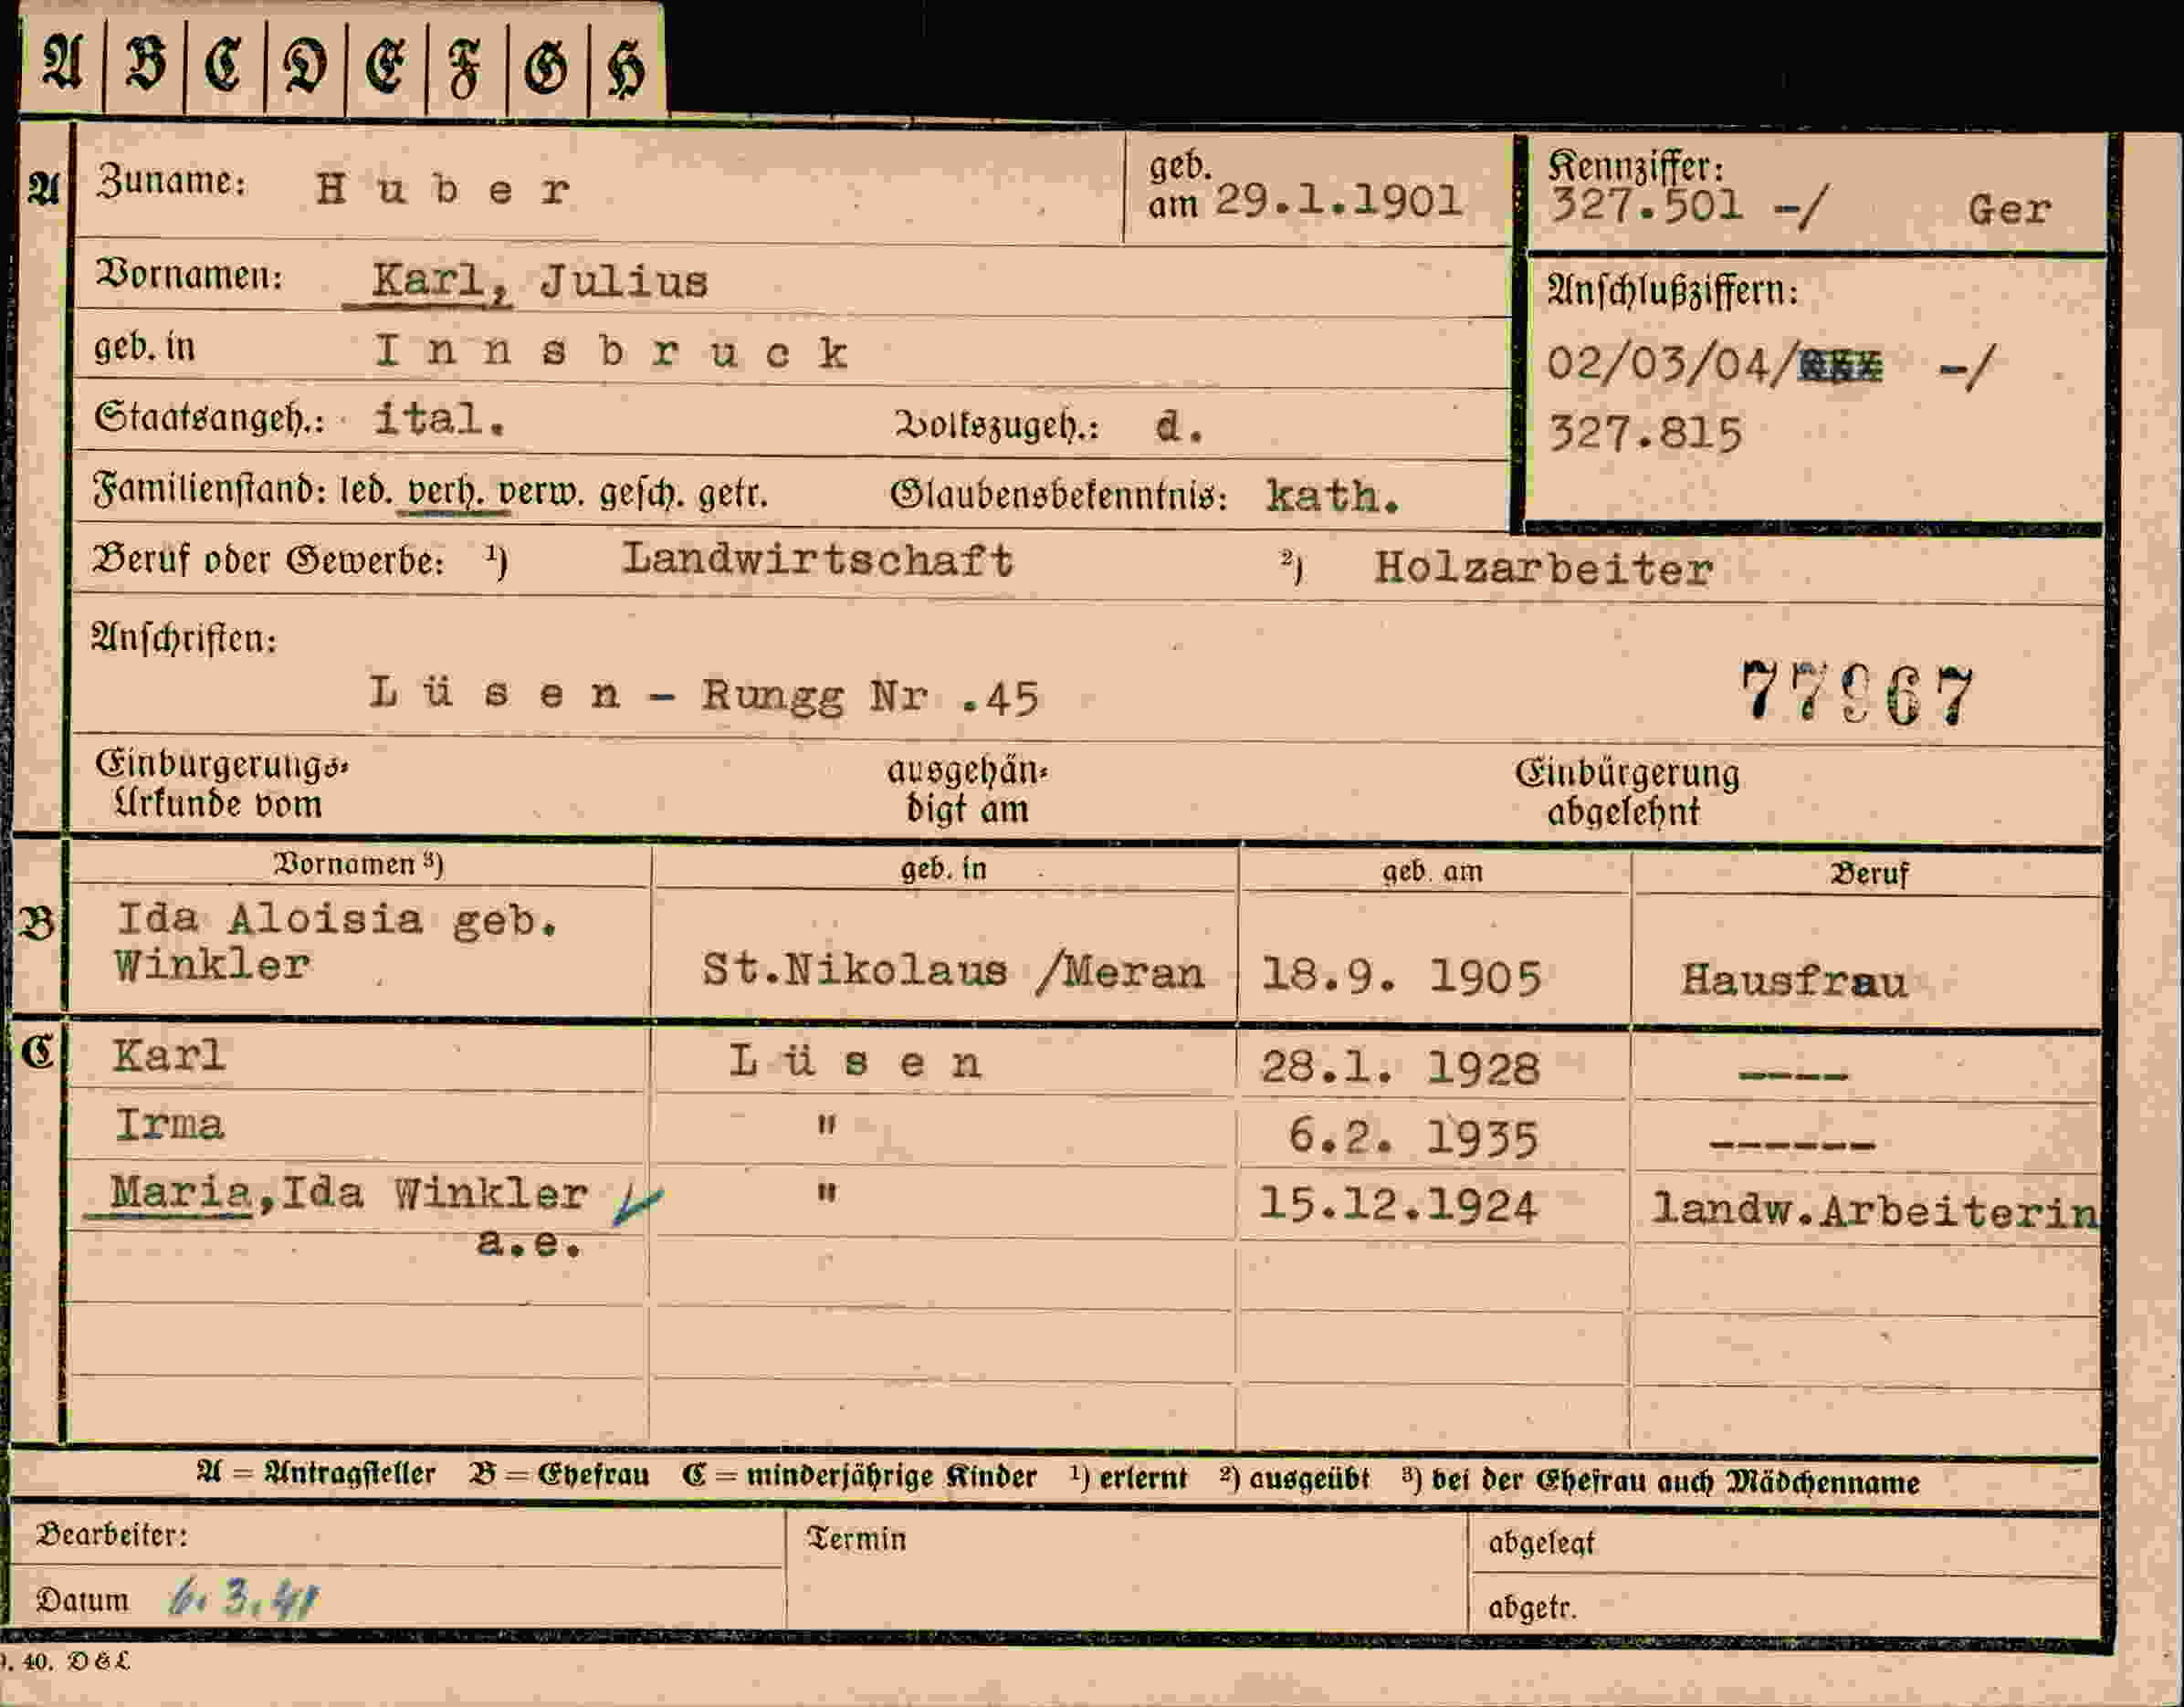 A B C D E F G H
A Zuname: Huber geb. am 29.1.1901 Kennziffer: 327.501 -/ Ger
Vornamen: Karl, Julius Anschlußziffern:
geb. in Innsbruck 02/03/04/ -/
Staatsangeh.: ital. Volkszugeh.: d. 327.815
Familienstand: led. verh. verw. gesch. getr. Glaubensbekenntnis: kath.
Beruf oder Gewerbe: ¹) Landwirtschaft ²) Holzarbeiter
Anschriften:
Lüsen - Rungg Nr .45 77967
Einbürgerungs- ausgehän- Einbürgerung
Urkunde vom digt am abgelehnt
Vornamen ³) geb. in geb. am Beruf
B Ida Aloisia geb.
Winkler St.Nikolaus /Meran 18.9. 1905 Hausfrau
C Karl Lüsen 28.1. 1928 ----
Irma " 6.2. 1935 ------
Maria,Ida Winkler " 15.12.1924 landw.Arbeiterin
a.e.
A = Antragsteller B = Ehefrau C = minderjährige Kinder ¹) erlernt ²) ausgeübt ³) bei der Ehefrau auch Mädchenname
Bearbeiter: Termin abgelegt
Datum 6.3.41 abgetr.
40. DGL